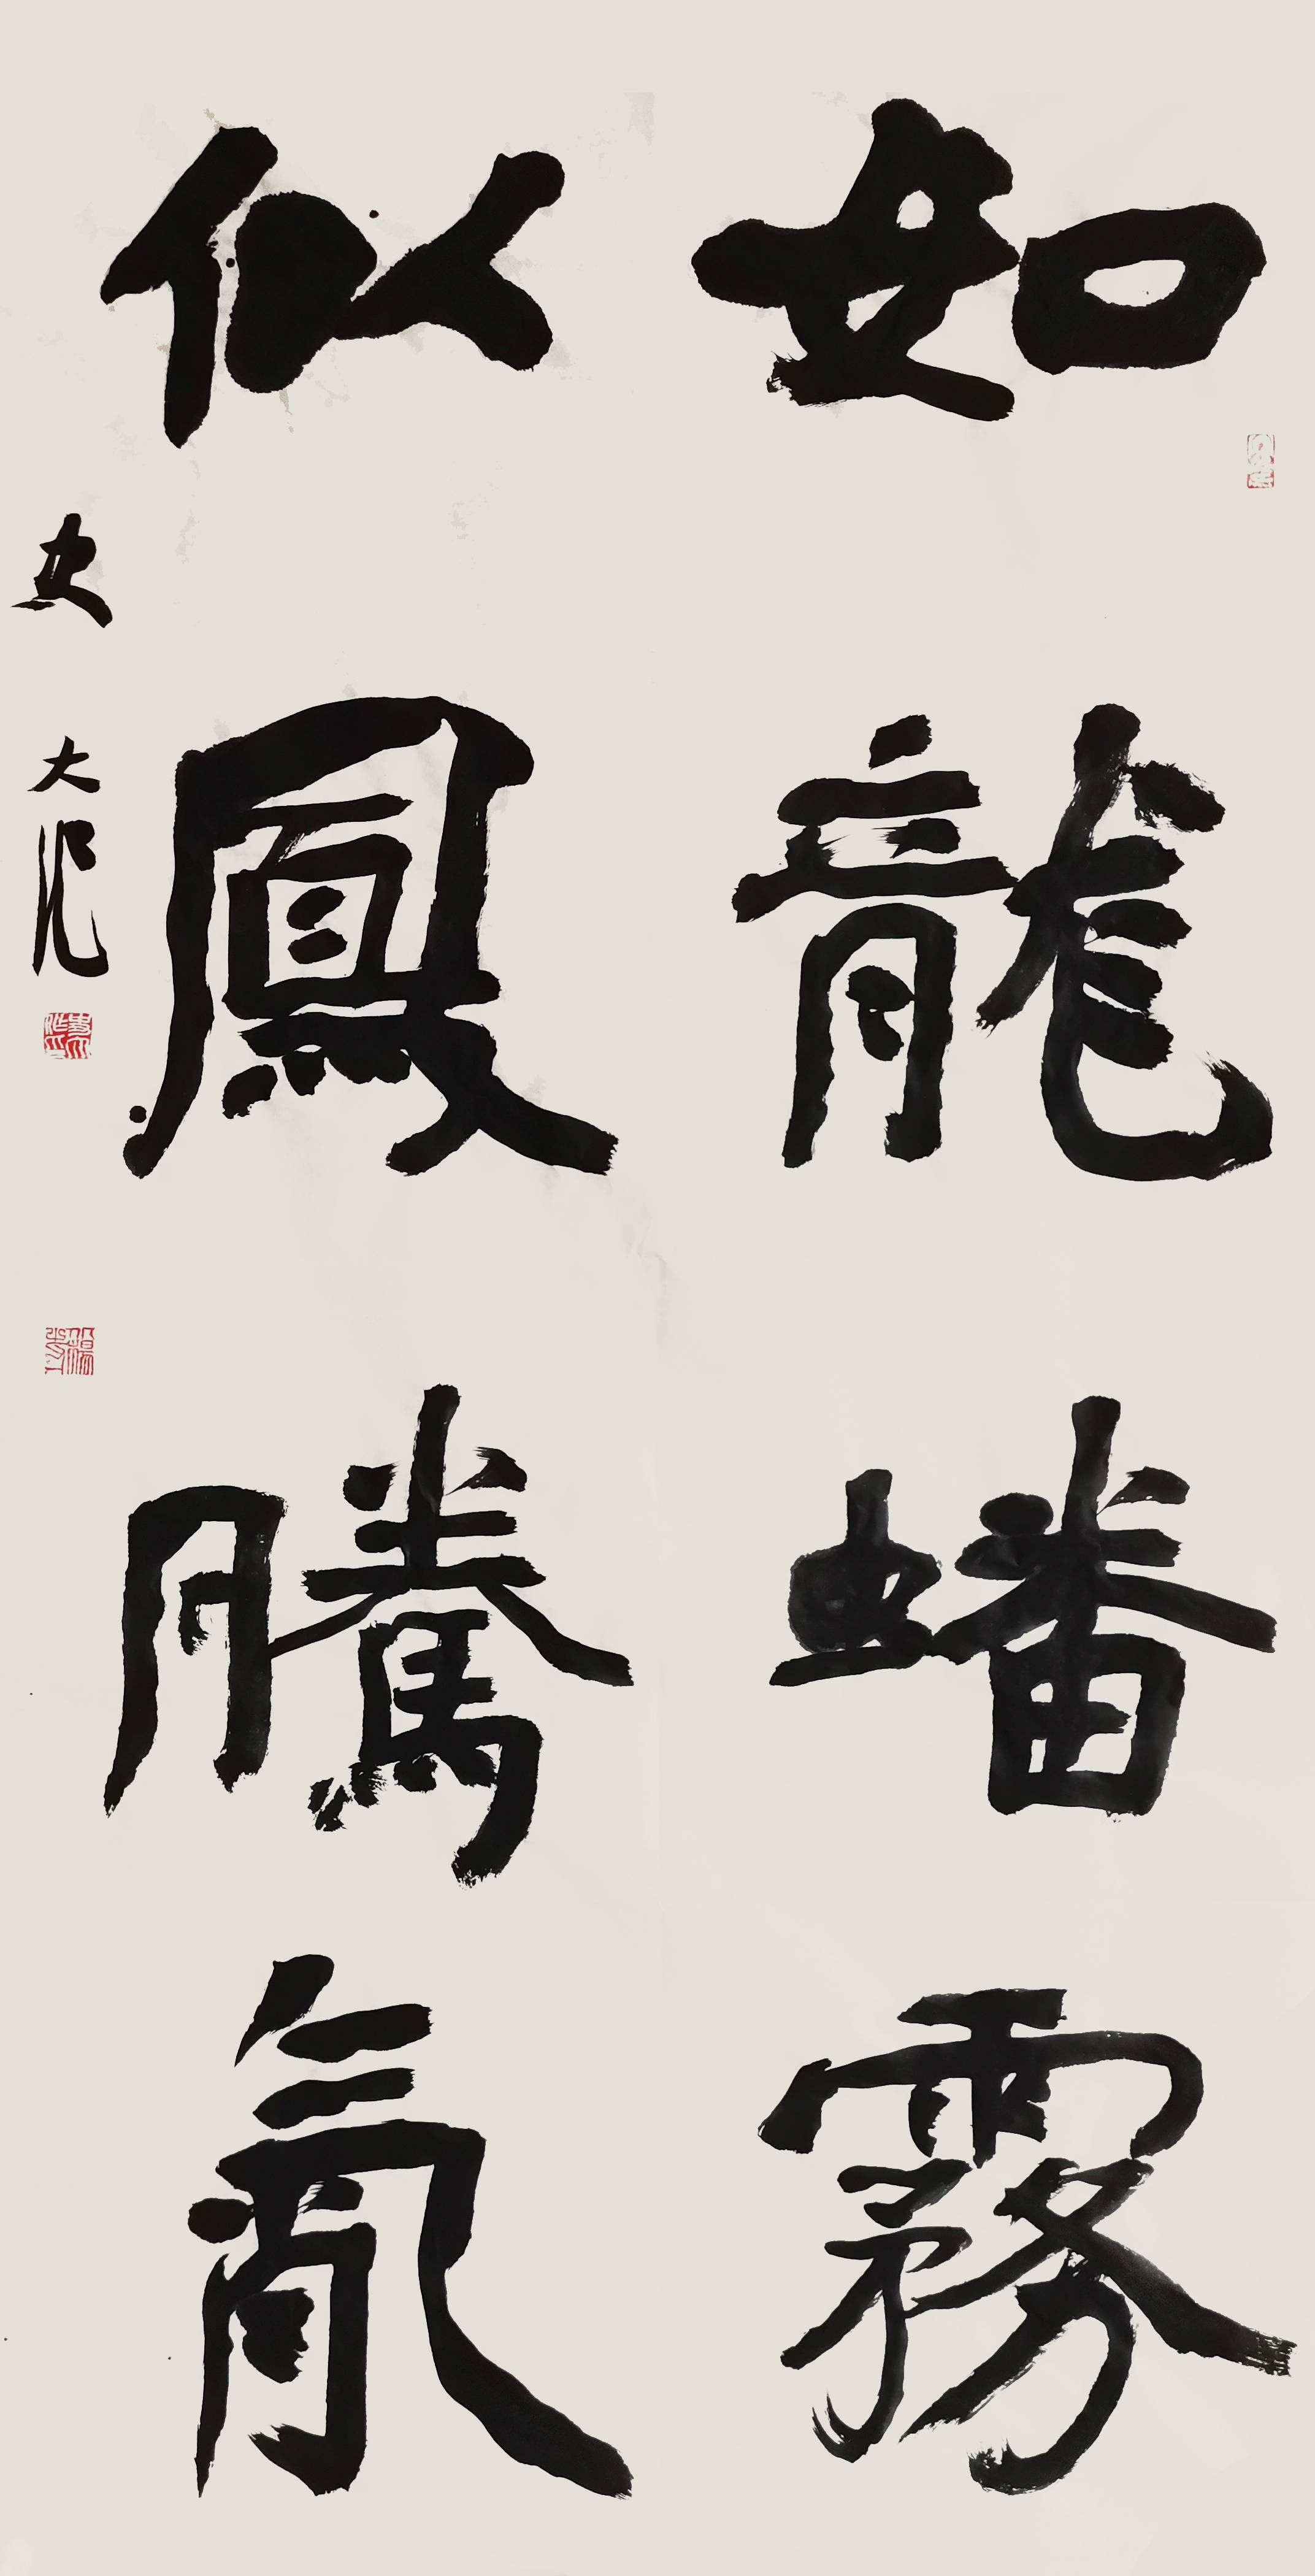 如龍蟠霧
似鳳騰
史大